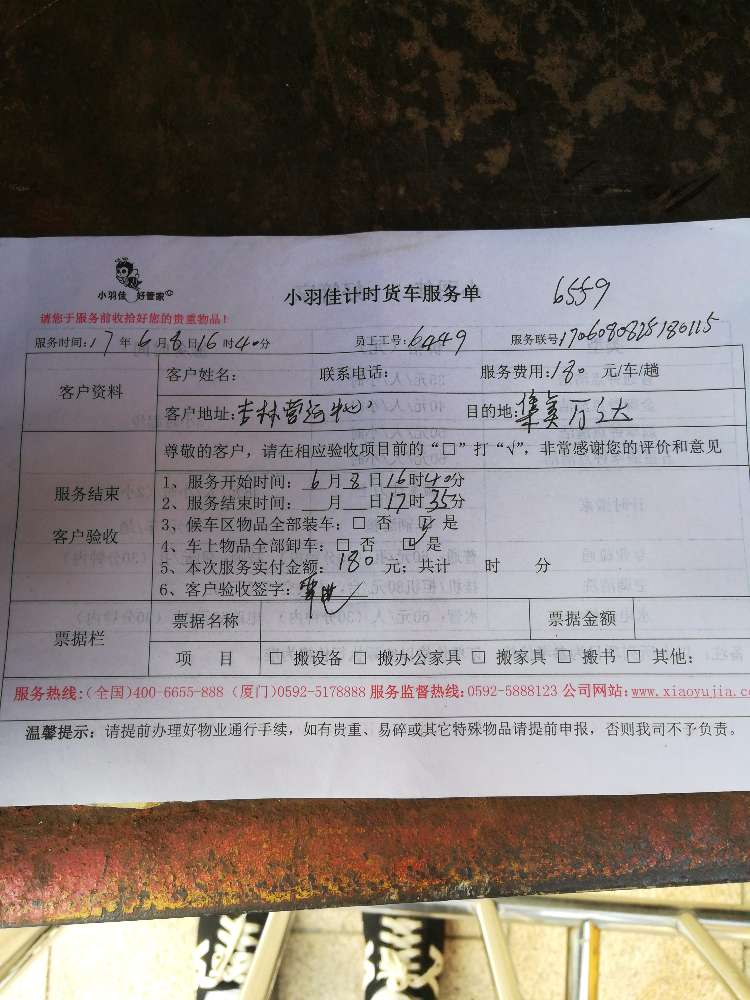 小羽佳 好管家
小羽佳计时货车服务单
6559
请您于服务前收拾好您的贵重物品！
服务时间：17年6月8日16时40分 员工工号：6449 服务联号170608082518011 5
客户资料
客户姓名： 联系电话： 服务费用：180元/车/趟
客户地址：杏林营运中心 目的地：集美万达
尊敬的客户，请在相应验收项目前的“□”打“√”，非常感谢您的评价和意见
服务结束
客户验收
1、服务开始时间：6月8日16时40分
2、服务结束时间：__月__日17时35分
3、候车区物品全部装车：□ 否 ☑ 是
4、车上物品全部卸车：□ 否 ☑ 是
5、本次服务实付金额：180元；共计 时 分
6、客户验收签字：
票据栏
票据名称 票据金额
项 目 □ 搬设备 □ 搬办公家具 □ 搬家具 □ 搬书 □ 其他：
服务热线：(全国)400-6655-888 (厦门)0592-5178888 服务监督热线：0592-5888123 公司网站：www.xiaoyujia.c
温馨提示：请提前办理好物业通行手续，如有贵重、易碎或其它特殊物品请提前申报，否则我司不予负责。